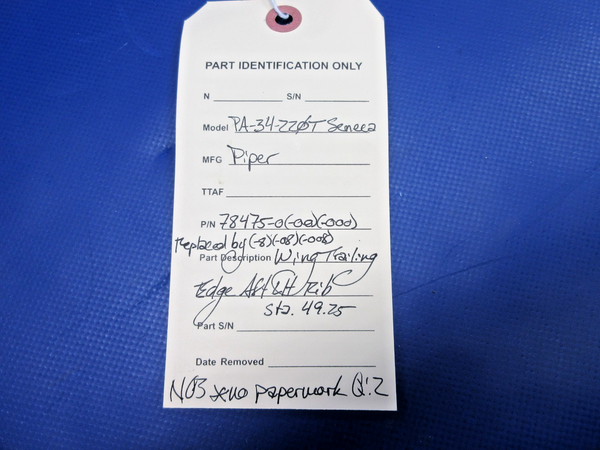 PART IDENTIFICATION ONLY
N S/N
Model PA-34-220T Seneca
MFG Piper
TTAF
P/N 78475-0(-00)(-000)
replaced by (-8)(-08)(-008)
Part Description Wing Trailing
Edge Aft LH Rib
Sta. 49.25
Part S/N
Date Removed
NOB no paperwork Q:2